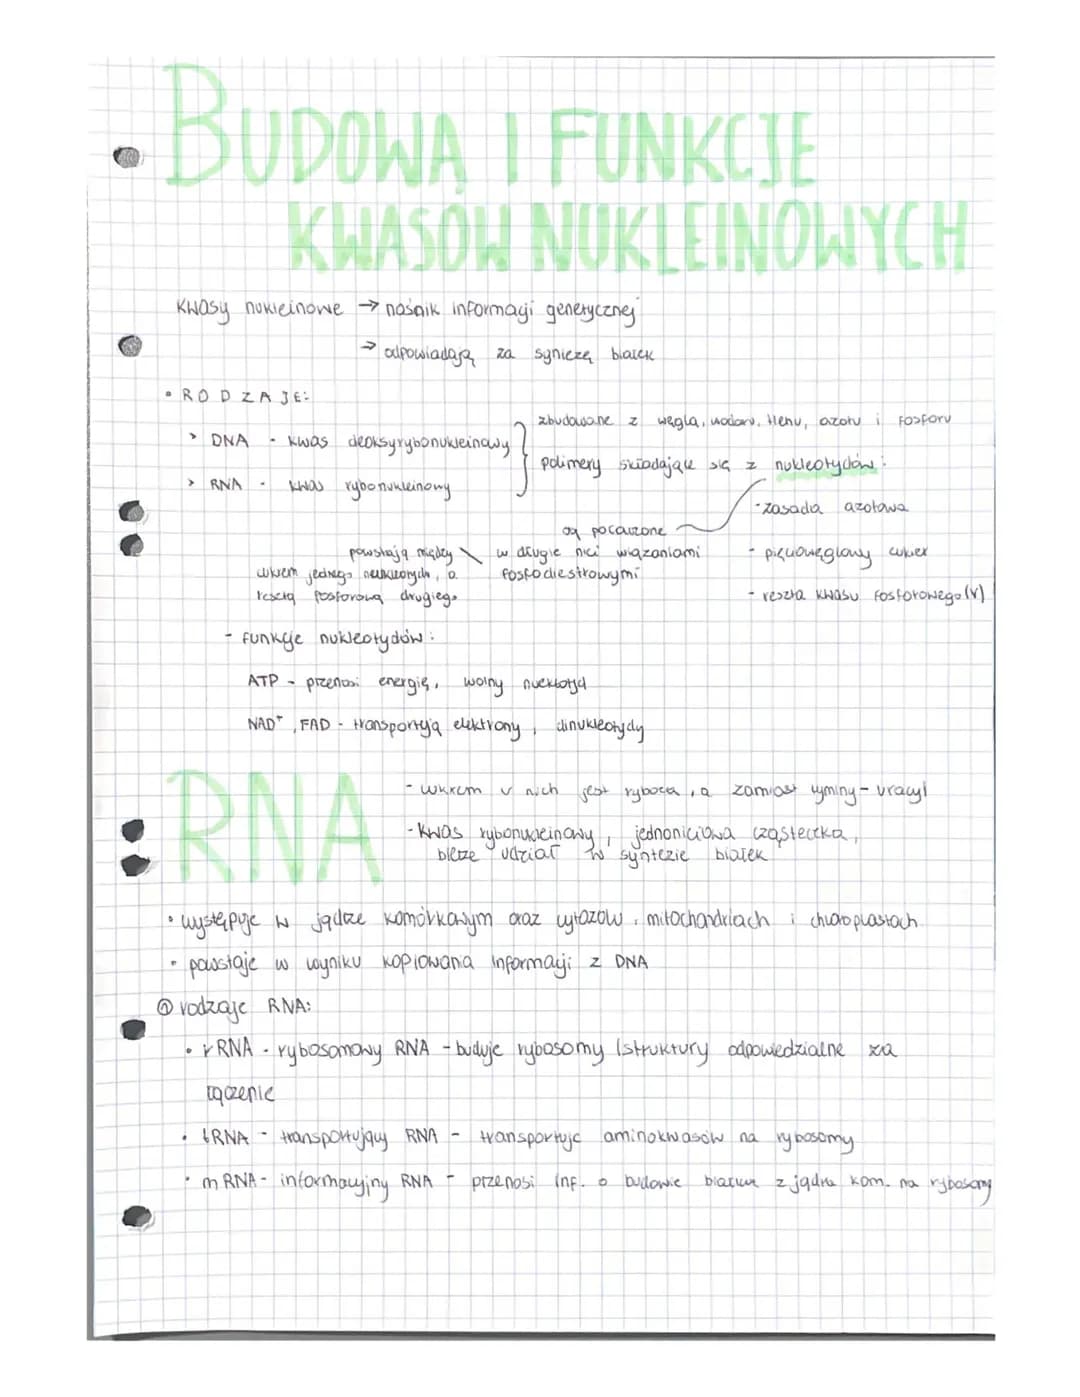 BUDOWA I FUNKCJE
KWASÓW NUKLEINOWYCH
Kwasy nukleinowe → nośnik informacji genetycznej
→ odpowiadają za syntezę białek
• RODZAJE:
> DNA - kwas deoksyrybonukleinowy
> RNA - kwas rybonukleinowy
zbudowane z węgla, wodoru, tlenu, azotu i fosforu
polimery składające się z nukleotydów:
- zasada azotowa
- pięciowęglowy cukier
- reszta kwasu fosforowego (V)
są połączone
w długie nici wiązaniami
fosfodiestrowymi
powstają między
cukrem jednego nukleotydu, a
resztą fosforową drugiego
- funkcje nukleotydów:
ATP - przenosi energię, wolny nukleotyd
NAD⁺, FAD - transportują elektrony, dinukleotydy
RNA
- cukrem w nich jest ryboza, a zamiast tyminy - uracyl
- kwas rybonukleinowy, jednoniciowa cząsteczka,
bierze udział w syntezie białek
• występuje w jądrze komórkowym oraz cytozolu, mitochondriach i chloroplastach
• powstaje w wyniku kopiowania informacji z DNA
① rodzaje RNA:
• rRNA - rybosomowy RNA - buduje rybosomy (struktury odpowiedzialne za
łączenie
• tRNA - transportujący RNA - transportuje aminokwasów na rybosomy
• mRNA - informacyjny RNA - przenosi inf. o budowie białka z jądra kom. na rybosomy